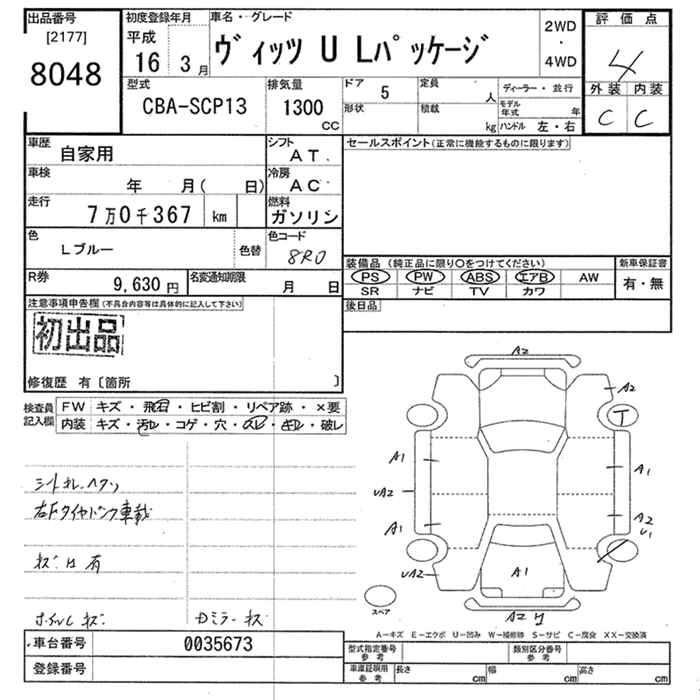 出品番号
[2177]
8048
初度登録年月
平成
16 3月
車名・グレード
ヴィッツ U Lパッケージ
2WD
・
4WD
評価点
4
外装 内装
C C
型式
CBA-SCP13
排気量
1300
CC
ドア 5
形状
定員 人
積載 kg
ディーラー・並行
モデル年式 年
ハンドル 左・右
車歴
自家用
シフト
AT.
車検
年 月( 日)
冷房
AC
走行
7万0千367 km
燃料
ガソリン
色
Lブルー
色替
色コード
8R0
R券
9,630円
名変通知期限
月 日
セールスポイント(正常に機能するものに限ります)
装備品(純正品に限り○をつけてください)
PS PW ABS エアB AW
SR ナビ TV カワ
新車保証書
有・無
後日品
注意事項申告欄(不具合内容等は具体的に記入して下さい)
初出品
修復歴 有〔箇所 〕
検査員
記入欄
FW キズ・飛石・ヒビ割・リペア跡・×要
内装 キズ・汚レ・コゲ・穴・スレ・キレ・破レ
シートスレ、ヘタリ
右Fタイヤパンク車載
キズ 凹 有
ホイルC キズ
Dミラー キズ
A2
A2
T
A1
A1
UA2
A1
A2
U1
UA2
A1
A2
スペア
A-キズ E-エクボ U-凹み W-補修跡 S-サビ C-腐食 XX-交換済
車台番号
0035673
登録番号
型式指定番号
参考
類別区分番号
参考
車庫証明用
参考
長さ cm 幅 cm 高さ cm